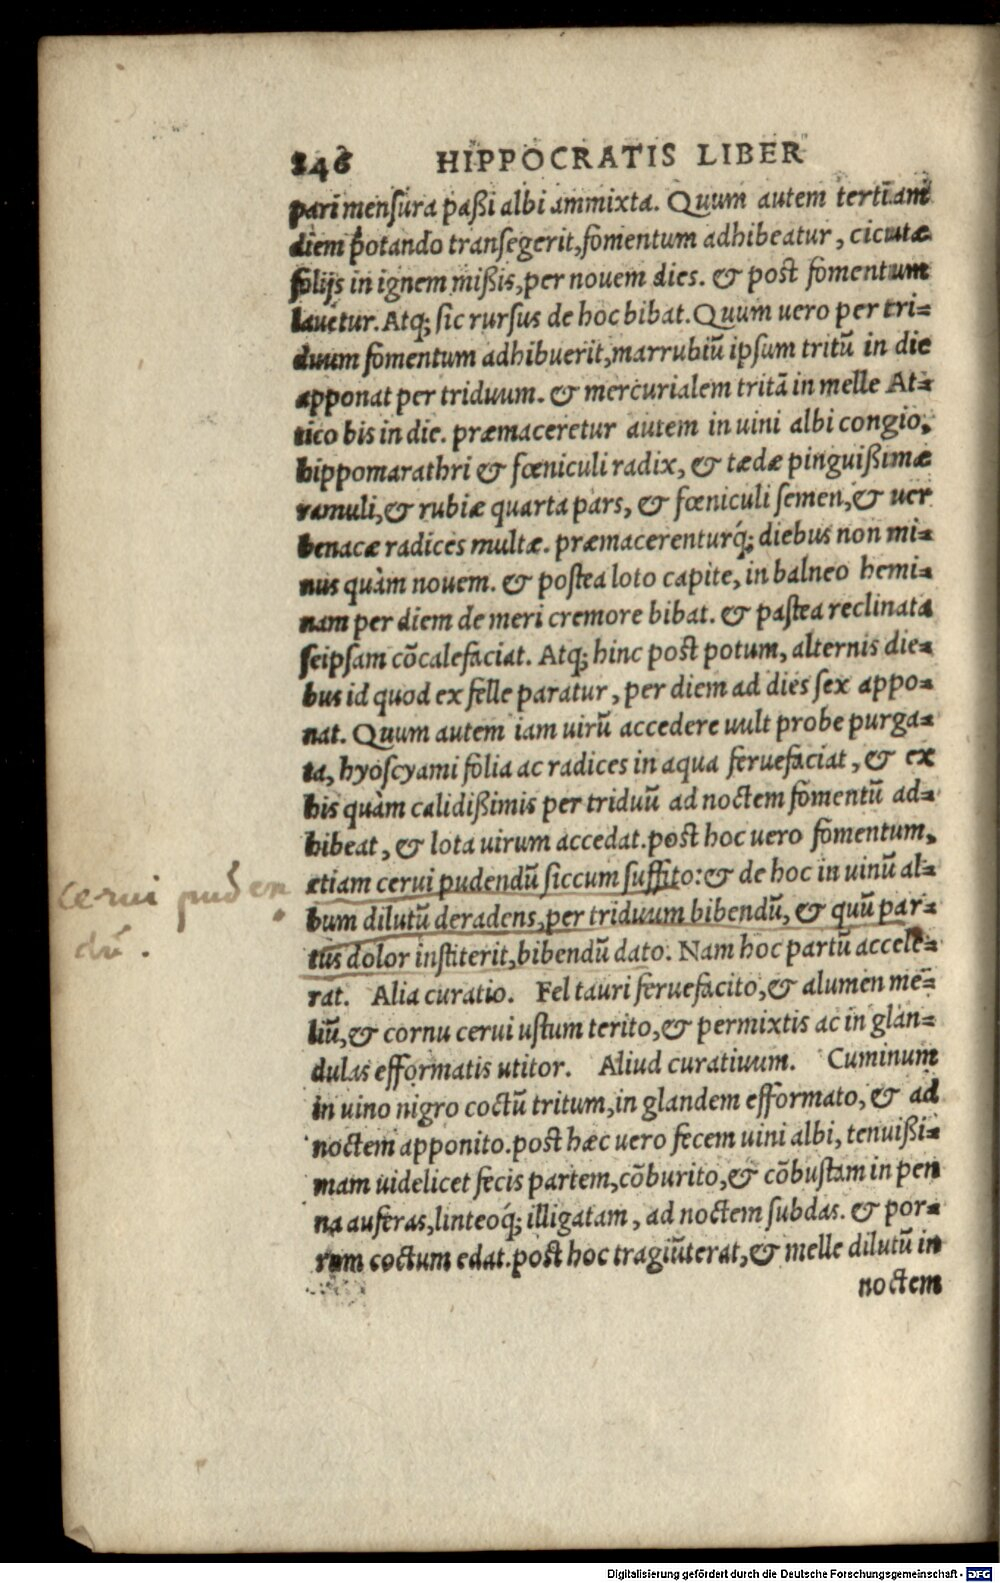 246 HIPPOCRATIS LIBER
pari mensura paßi albi ammixta. Quum autem tertiam
diem potando transegerit, fomentum adhibeatur, cicutæ
folijs in ignem mißis, per nouem dies. & post fomentum
lauetur. Atq; sic rursus de hoc bibat. Quum uero per tri=
duum fomentum adhibuerit, marrubiū ipsum tritū in die
apponat per triduum. & mercurialem tritā in melle At=
tico bis in die. præmaceretur autem in uini albi congio,
hippomarathri & fœniculi radix, & tædæ pinguißimæ
ramuli, & rubiæ quarta pars, & fœniculi semen, & uer
benacæ radices multæ. præmacerenturq́; diebus non mi=
nus quàm nouem. & postea loto capite, in balneo hemi=
nam per diem de meri cremore bibat. & pastea reclinata
seipsam cōcalefaciat. Atq; hinc post potum, alternis die=
bus id quod ex felle paratur, per diem ad dies sex appo=
nat. Quum autem iam uirū accedere uult probe purga=
ta, hyoscyami folia ac radices in aqua feruefaciat, & ex
his quàm calidißimis per triduū ad noctem fomentū ad=
hibeat, & lota uirum accedat. post hoc uero fomentum,
etiam cerui pudendū siccum suffito: & de hoc in uinū al=
bum dilutū deradens, per triduum bibendū, & quū par=
tus dolor institerit, bibendū dato. Nam hoc partū accele=
rat. Alia curatio. Fel tauri feruefacito, & alumen me=
liū, & cornu cerui ustum terito, & permixtis ac in glan=
dulas efformatis utitor. Aliud curatiuum. Cuminum
in uino nigro coctū tritum, in glandem efformato, & ad
noctem apponito. post hæc uero fecem uini albi, tenuißi=
mam uidelicet fecis partem, cōburito, & cōbustam in pen
na auferas, linteoq́; illigatam, ad noctem subdas. & por=
rum coctum edat. post hoc tragiū terat, & melle dilutū in
noctem
cerui puden
dū.
Digitalisierung gefördert durch die Deutsche Forschungsgemeinschaft - DFG